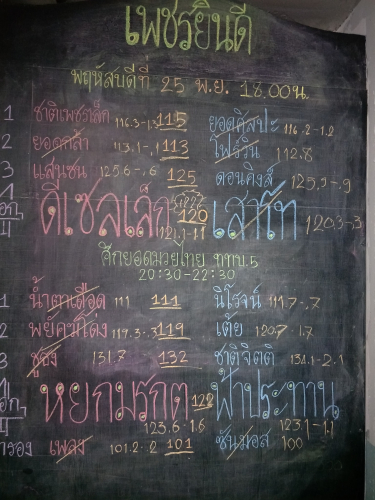 เพชรยินดี
พฤหัสบดีที่ 25 พ.ย. 18.00น.
1 ชาติเพชรเล็ก 116.3-1.3 115 ยอดศิลปะ 116.2-1.2
2 ยอดกล้า 113.1-.1 113 โฟร์วิน 112.8
3 แสนชน 125.6-.6 125 ดอนคิงส์ 125.9-.9
ดีเซลเล็ก 120 เสาโท 120.3-.3
121.1-1.1
ศึกยอดมวยไทย ททบ.5
20:30-22:30
1 น้ำตาเดือด 111 111 นิโรจน์ 111.7-.7
2 พยัคฆ์โดง 119.3-.3 119 เต้ย 120.7-1.7
3 131.7 132 ชาติจิตติ 134.1-2.1
เอก หยกมรกต 122 ฟ้าประทาน
123.6-1.6 123.1-1.1
สำรอง เพลง 101.2-.2 101 ซันมอส 100